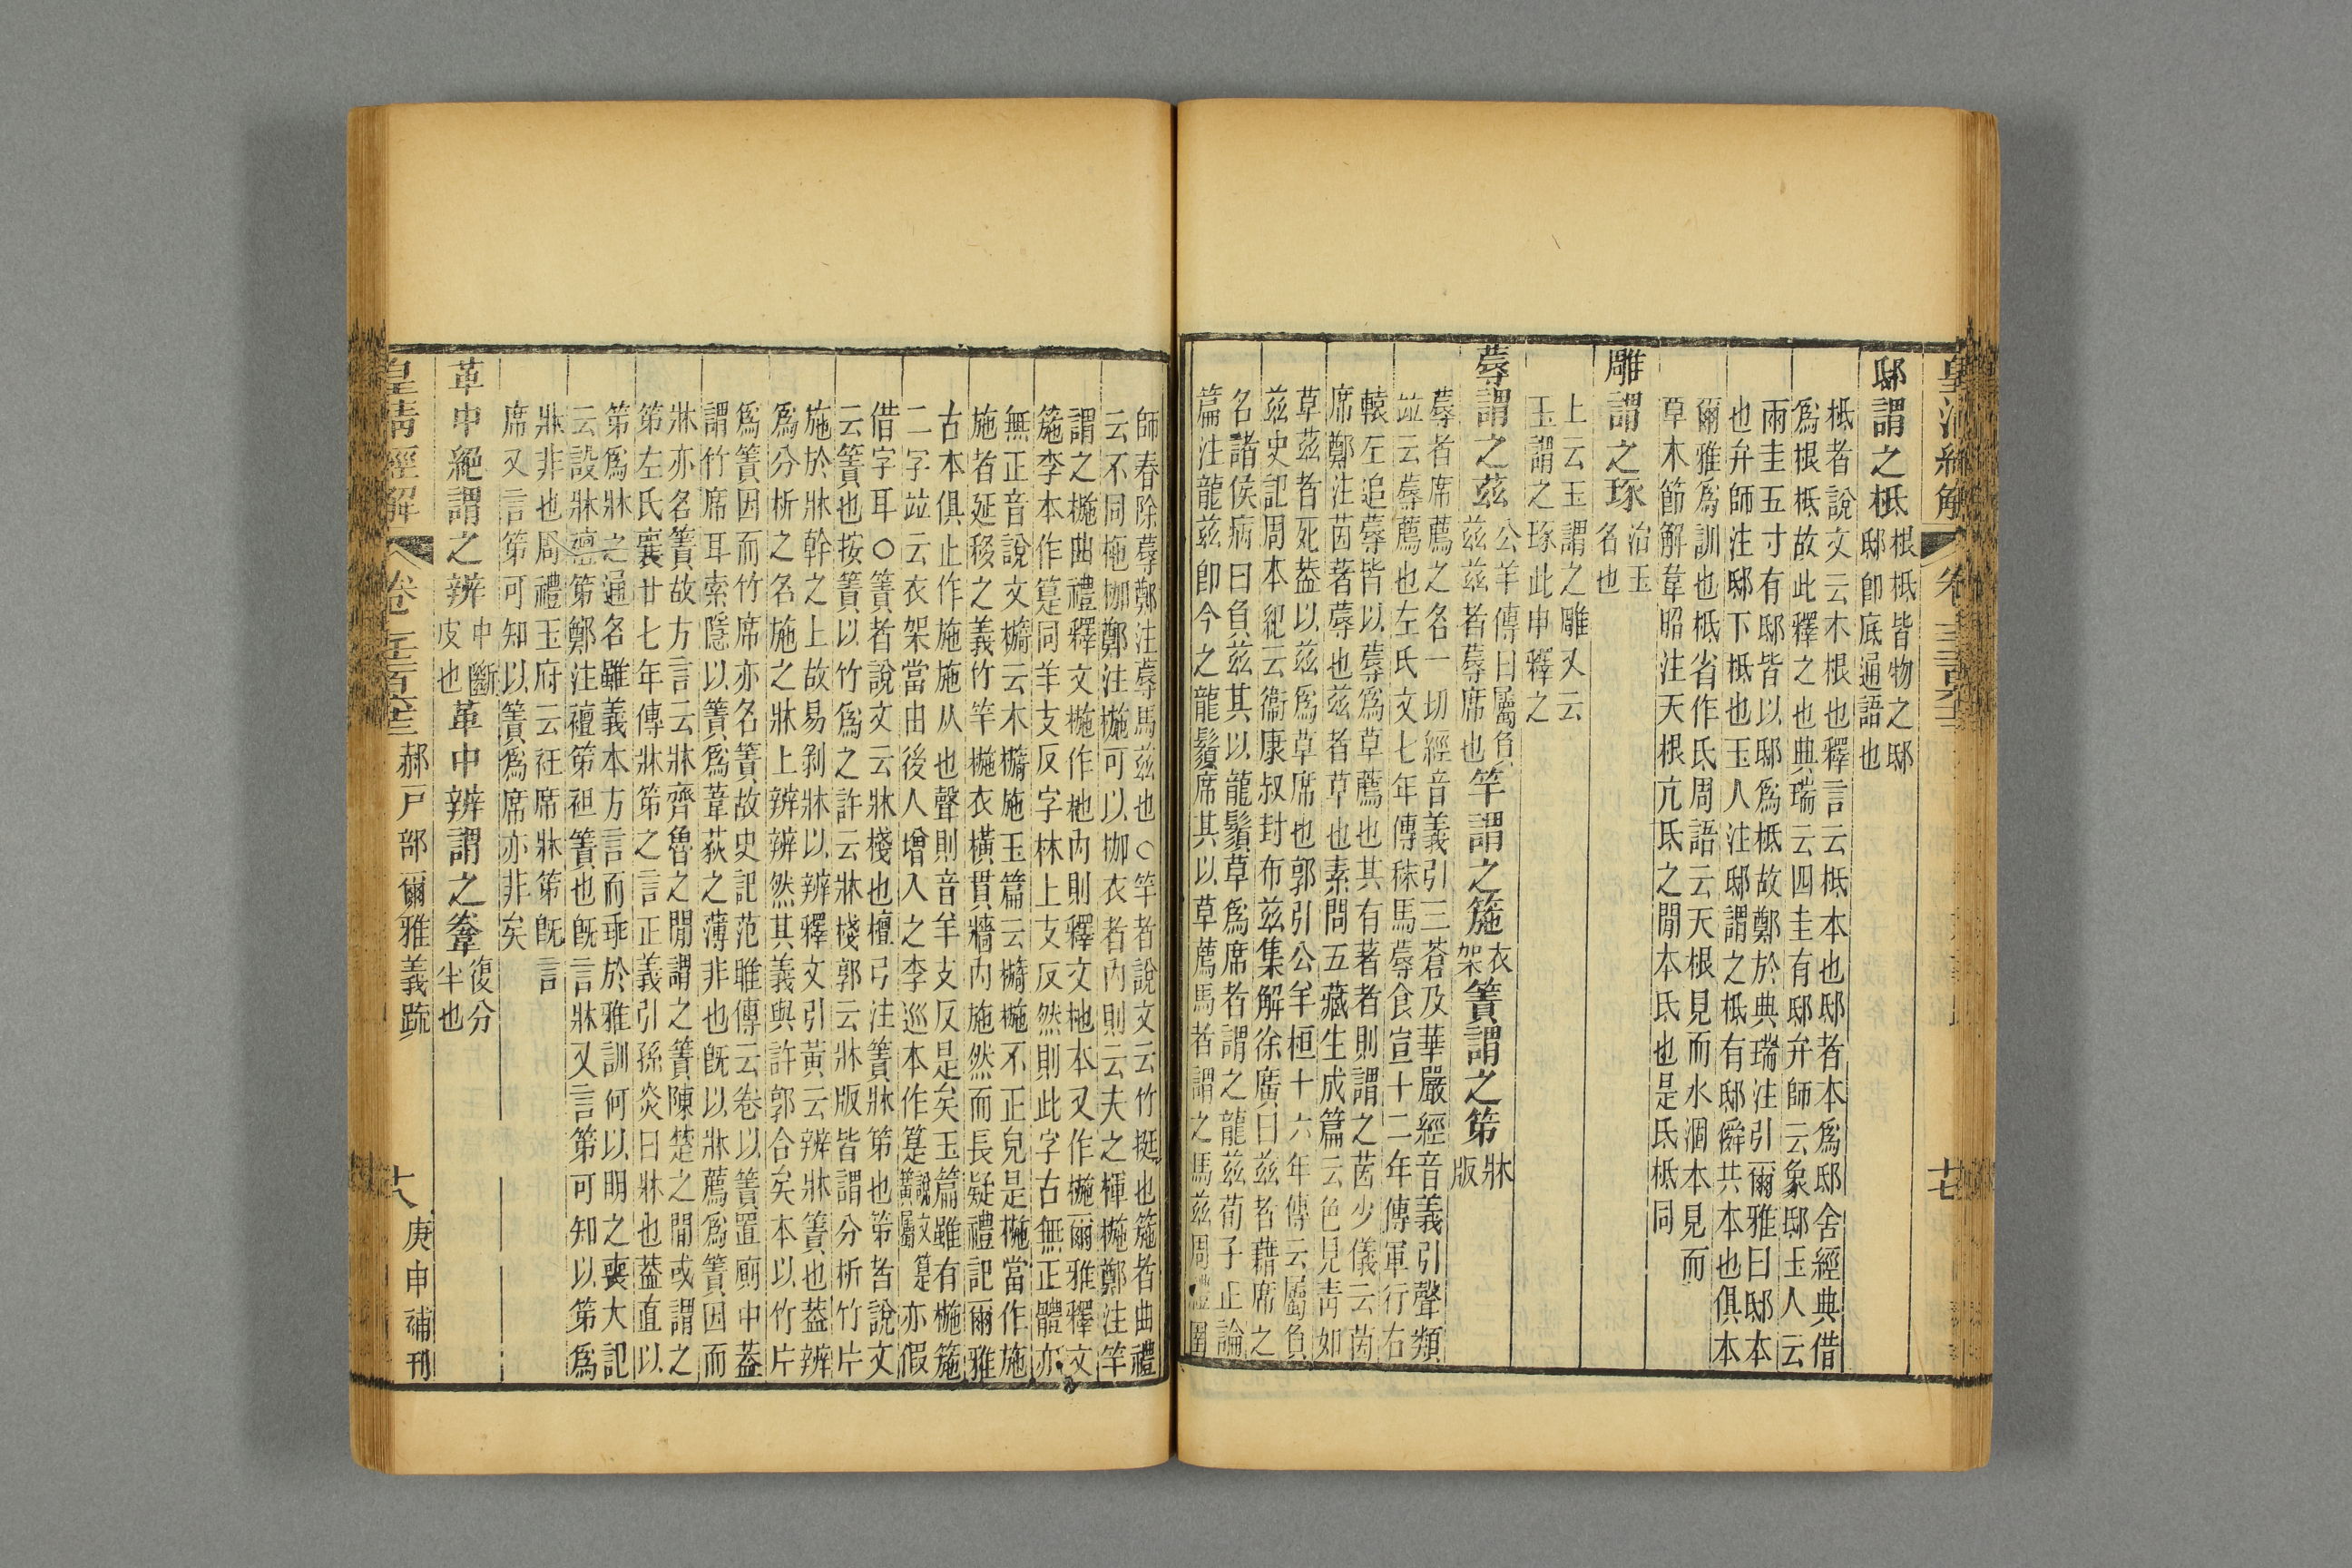 皇清經解
邸謂之柢根柢皆物之邸
邸卽底通語也
柢者說文云木根也釋言云柢本也邸者本爲邸舍經典借
爲根柢故此釋之也典瑞云四圭有邸弁師云象邸玉人云
兩圭五寸有邸皆以邸爲柢故鄭於典瑞注引爾雅曰邸本
也弁師注邸下柢也玉人注邸謂之柢有邸僢共本也俱本
爾雅爲訓也柢省作氐周語云天根見而水涸本見而
草木節解韋昭注天根亢氐之閒本氐也是氐柢同
雕謂之琢治玉
名也
上云玉謂之雕又云
玉謂之琢此申釋之
蓐謂之茲公羊傳曰屬負
茲茲者蓐席也竿謂之箷衣
架簀謂之笫牀
版
蓐者席薦之名一切經音義引三蒼及華嚴經音義引聲類
竝云蓐薦也左氏文七年傳秣馬蓐食宣十二年傳軍行右
轅左追蓐皆以蓐爲草薦也其有著者則謂之茵少儀云茵
席鄭注茵著蓐也茲者草也素問五藏生成篇云色見靑如
草茲者死葢以茲爲草席也郭引公羊桓十六年傳云屬負
茲史記周本紀云衞康叔封布茲集解徐廣曰茲者藉席之
名諸侯病曰負茲其以龍鬚草爲席者謂之龍茲荀子正論
篇注龍茲卽今之龍鬚席其以草薦馬者謂之馬茲周禮圉
師春除蓐鄭注蓐馬茲也○竿者說文云竹挺也箷者曲禮
云不同椸枷鄭注椸可以枷衣者內則云夫之楎椸鄭注竿
謂之椸曲禮釋文椸作杝內則釋文杝本又作椸爾雅釋文
箷李本作箟同羊支反字林上支反然則此字古無正體亦
無正音說文檹云木檹施玉篇云檹椸不正皃是椸當作施
施者延移之義竹竿椸衣橫貫牆內施然而長疑禮記爾雅
古本俱止作施施从也聲則音羊支反是矣玉篇雖有椸箷
二字竝云衣架當由後人增入之李巡本作箟說文箟簧屬亦假
借字耳○簀者說文云牀棧也檀弓注簀牀笫也笫者說文
云簀也按簀以竹爲之許云牀棧郭云牀版皆謂分析竹片
施於牀幹之上故易剝牀以辨釋文引黃云辨牀簀也葢辨
爲分析之名施之牀上辨辨然其義與許郭合矣本以竹片
爲簀因而竹席亦名簀故史記范雎傳云卷以簀置廁中葢
謂竹席耳索隱以簀爲葦荻之薄非也旣以牀薦爲簀因而
牀亦名簀故方言云牀齊魯之閒謂之簀陳楚之閒或謂之
笫左氏襄廿七年傳牀笫之言正義引孫炎曰牀也葢直以
笫爲牀之通名雖義本方言而乖於雅訓何以明之喪大記
云設牀襢笫鄭注襢笫袒簀也旣言牀又言笫可知以笫爲
牀非也周禮玉府云衽席牀笫旣言
席又言笫可知以簀爲席亦非矣
革中絕謂之辨中斷
皮也革中辨謂之韏復分
半也
皇清經解 卷一千二百六十三 郝戶部爾雅義疏 大 庚申補刊